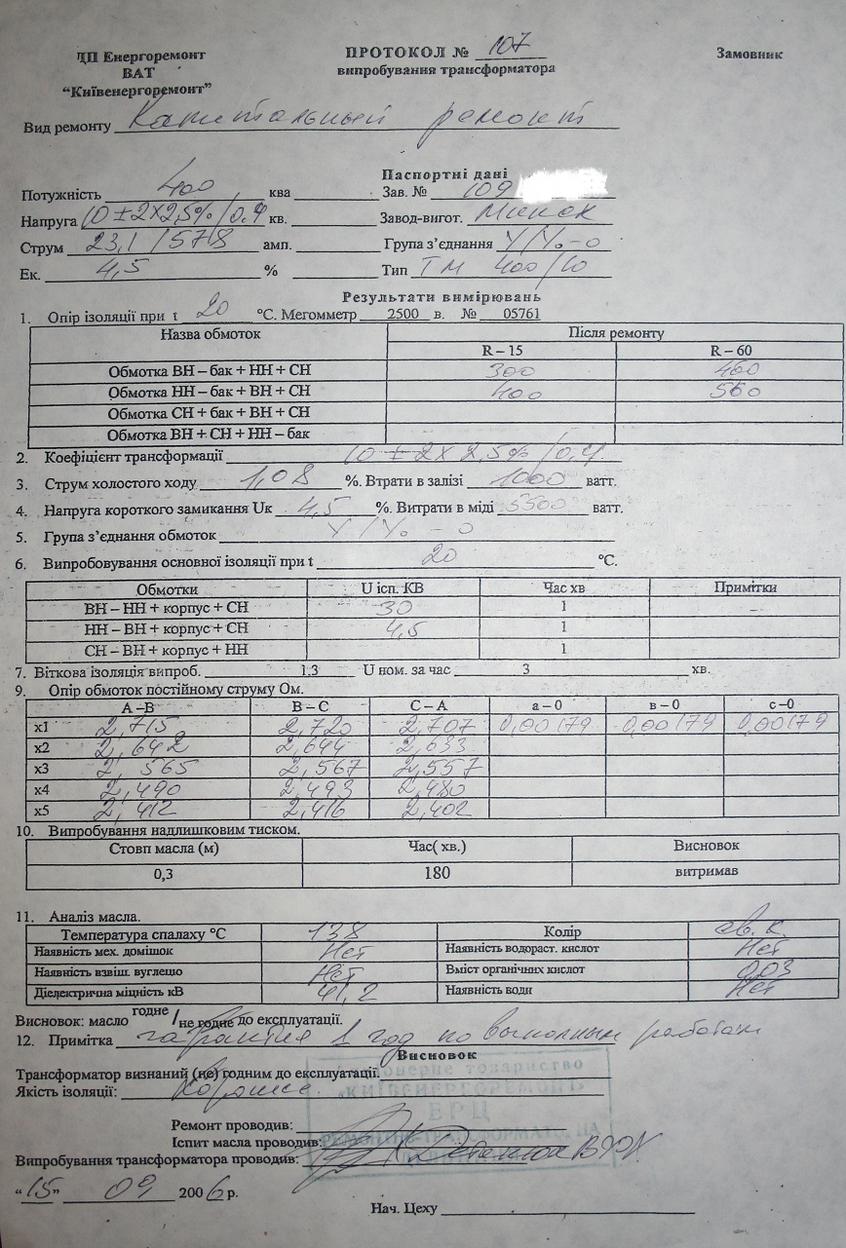 ДП Енергоремонт
ВАТ
“Київенергоремонт”
ПРОТОКОЛ № 107
випробування трансформатора
Замовник
Вид ремонту Капитальный ремонт
Паспортні дані
Потужність 400 ква Зав. № 109
Напруга 10 ±2х2,5% / 0,4 кв. Завод-вигот. Минск
Струм 23,1 / 578 амп. Група з’єднання Y/Yо-0
Ек. 4,5 % Тип ТМ 400/10
Результати вимірювань
1. Опір ізоляції при t 20 °С. Мегомметр 2500 в. № 05761
Назва обмоток Після ремонту
R – 15 R – 60
Обмотка ВН – бак + НН + СН 300 460
Обмотка НН – бак + ВН + СН 400 560
Обмотка СН + бак + ВН + СН
Обмотка ВН + СН + НН – бак
2. Коефіцієнт трансформації 10 ± 2х2,5% / 0,4
3. Струм холостого ходу 1,08 %. Втрати в залізі 1000 ватт.
4. Напруга короткого замикання Uк 4,5 %. Витрати в міді 5500 ватт.
5. Група з’єднання обмоток Y/Yо – 0
6. Випробовування основної ізоляції при t 20 °С.
Обмотки U ісп. КВ Час хв Примітки
ВН – НН + корпус + СН 30 1
НН – ВН + корпус + СН 4,5 1
СН – ВН + корпус + НН 1
7. Віткова ізоляція випроб. 1.3 U ном. за час 3 хв.
9. Опір обмоток постійному струму Ом.
А –В В – С С – А а – 0 в – 0 с –0
х1 2,715 2,720 2,707 0,00179 0,00179 0,00179
х2 2,642 2,644 2,633
х3 2,565 2,567 2,557
х4 2,490 2,493 2,480
х5 2,412 2,416 2,402
10. Випробування надлишковим тиском.
Стовп масла (м) Час( хв.) Висновок
0,3 180 витримав
11. Аналіз масла.
Температура спалаху °С 138 Колір св. к.
Наявність мех. домішок Нет Наявність водораст. кислот Нет
Наявність взвіш. вуглецю Нет Вміст органічних кислот 0,03
Діелектрична міцність кВ 41,2 Наявність води Нет
Висновок: масло годне / не годне до експлуатації.
12. Примітка гарантия 1 год по выполным работам
Висновок
Трансформатор визнаний (не) годним до експлуатації.
Якість ізоляції: хорошие
товариство
«КИЇВЕНЕРГОРЕМОНТ»
ВРЦ
Ремонт проводив:
Іспит масла проводив:
Випробування трансформатора проводив:
“15” 09 2006 р.
Нач. Цеху